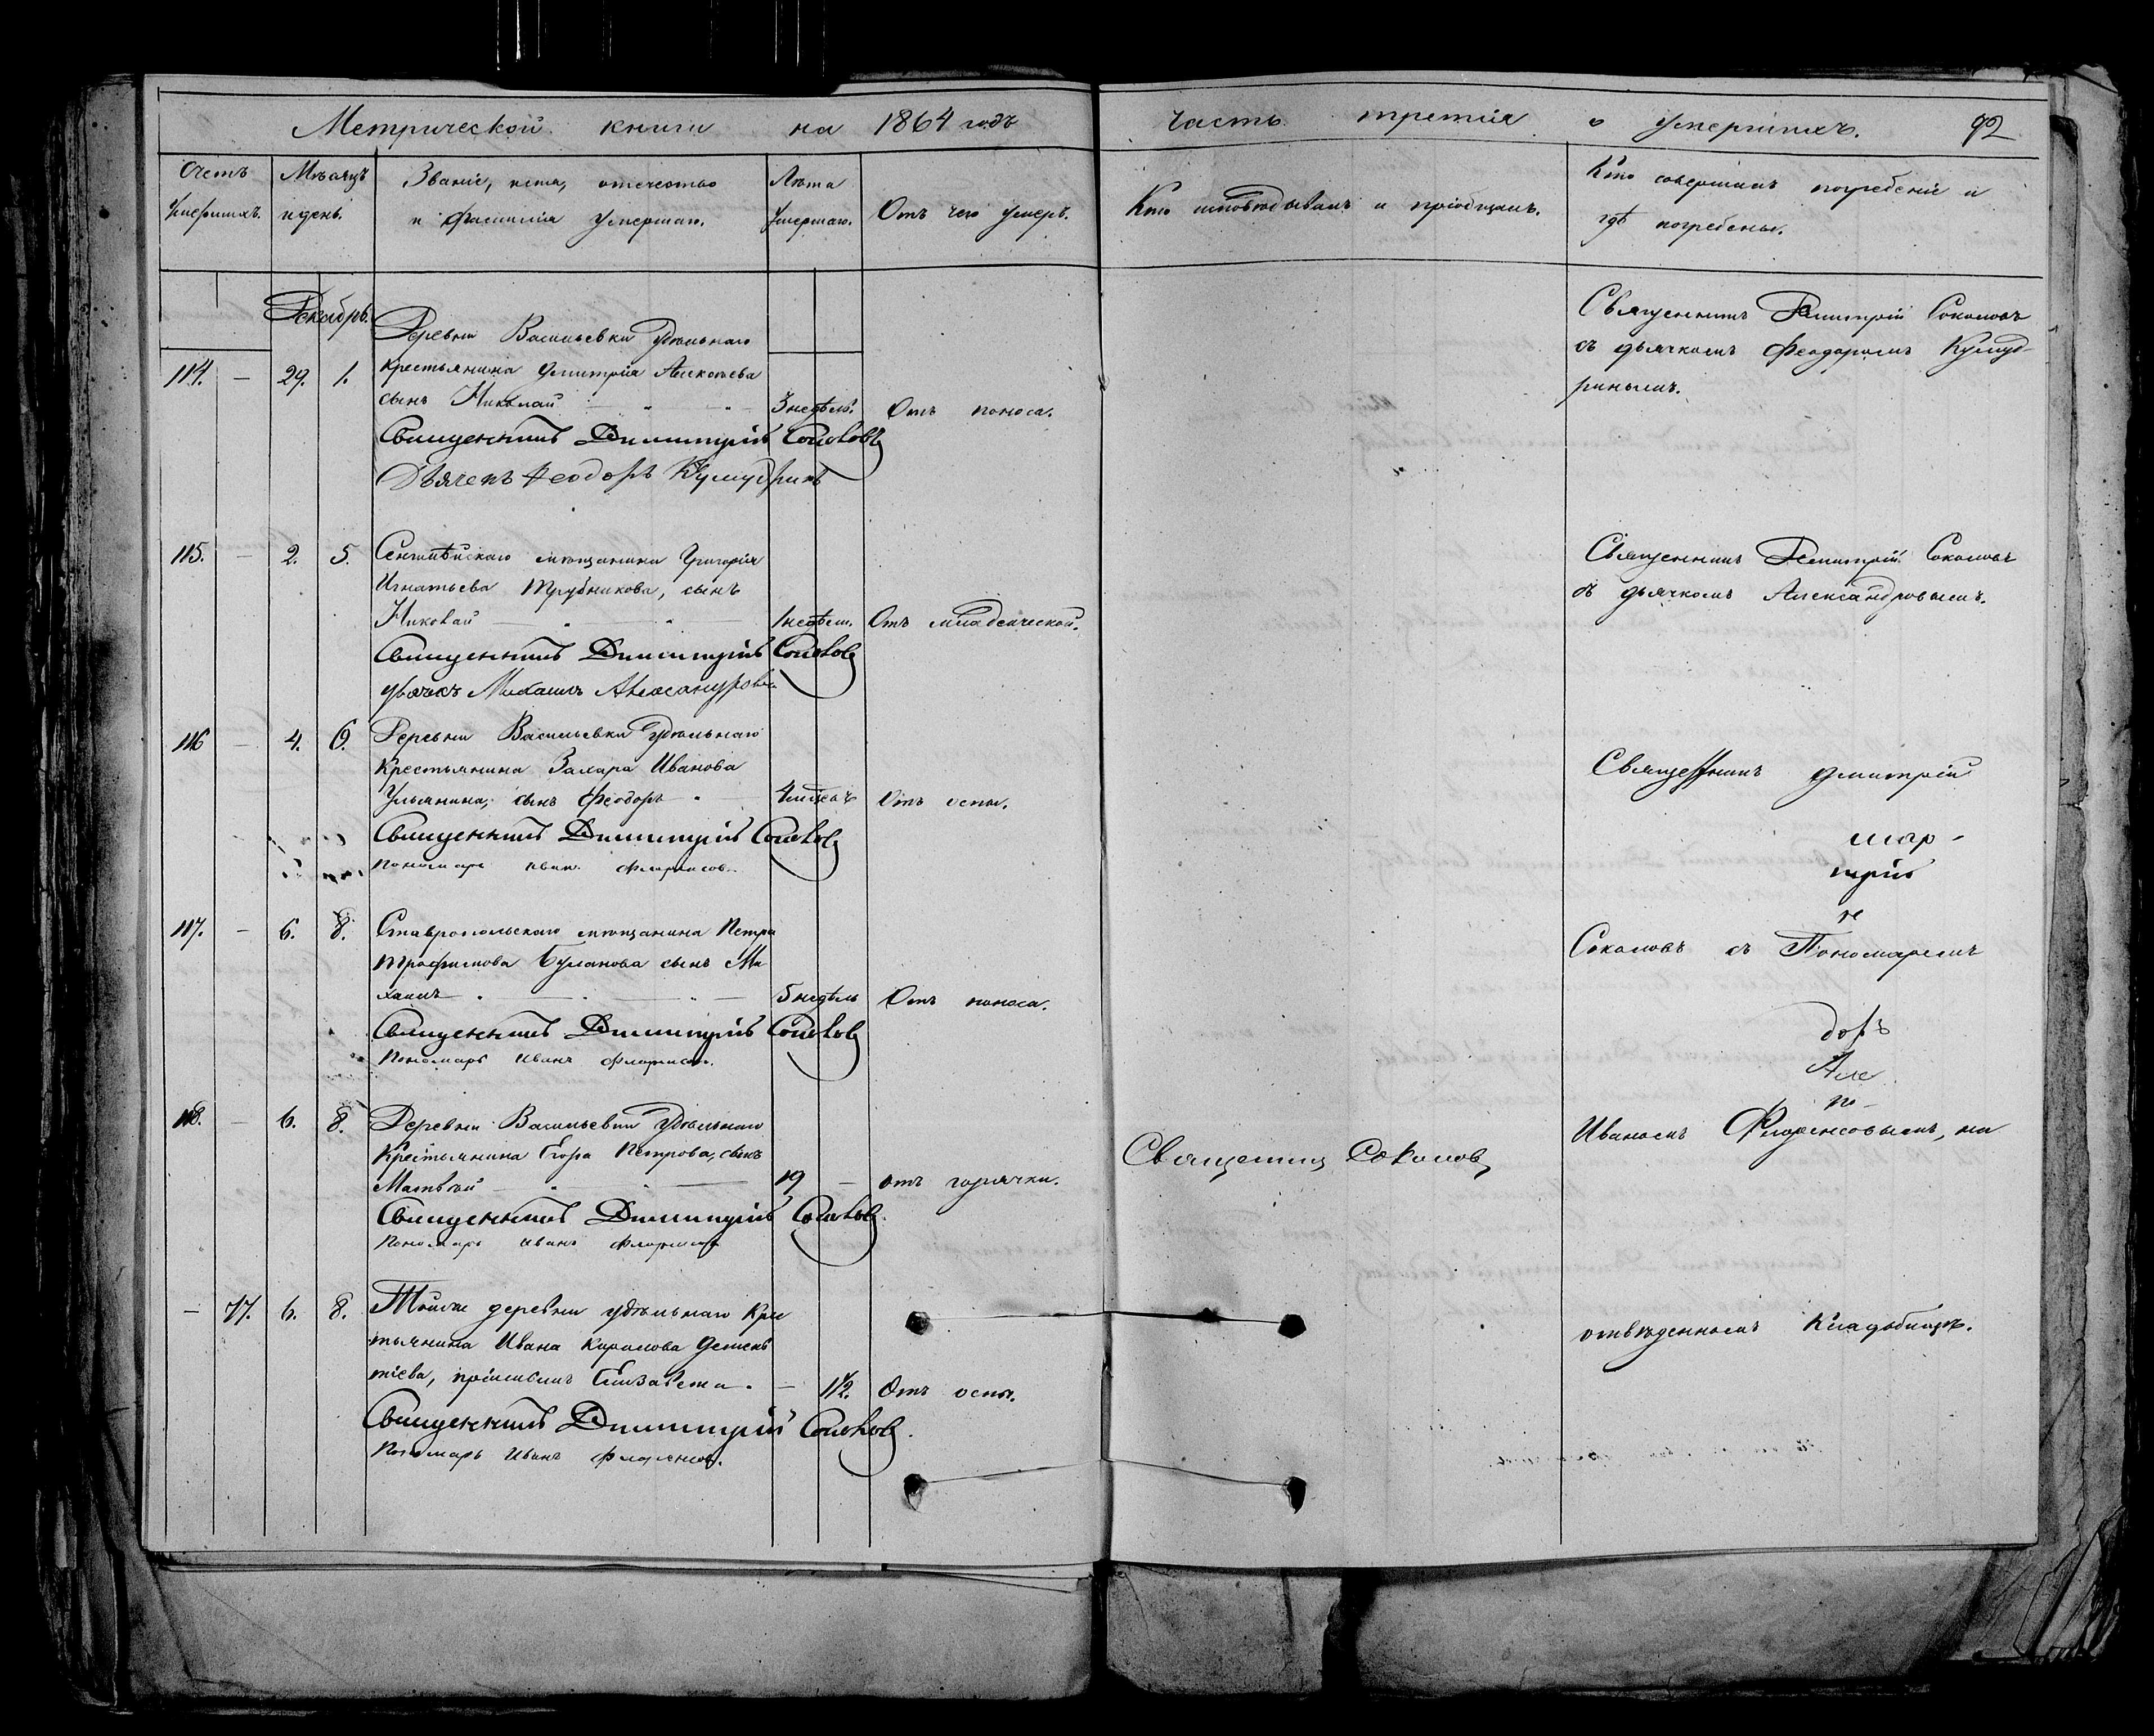 Метрической книги на 1864 годъ
Часть третія о умершихъ. 92
Счетъ умершихъ.
Мѣсяцъ и день.
Званіе, имя, отечество
и фамилія умершаго.
Лѣта умершаго.
Отъ чего умеръ.
Кто исповѣдывалъ и пріобщалъ.
Кто совершалъ погребеніе и
гдѣ погребены.
Декабрь.
Деревни Васильевки Удѣльнаго
114. — 29. 1. Крестьянина Дмитрія Алексѣева
сынъ Николай 3 недѣль. Отъ поноса.
Священникъ Димитрій Соколовъ
Дьячекъ Феодоръ Кумудринъ
Священникъ Дмитрій Соколовъ
съ дьячкомъ Феодоромъ Кумуд-
ринымъ.
115. — 2. 5. Сенгилѣйскаго мѣщанина Григорія
Игнатьева Трубникова, сынъ
Николай 1 недѣли. Отъ младенческой.
Священникъ Димитрій Соколовъ
дьячекъ Михаилъ Александровъ
Священникъ Дмитрій Соколовъ
съ дьячкомъ Александровымъ.
116 — 4. 6. Деревни Васильевки Удѣльнаго
Крестьянина Захара Иванова
Ульянина, сынъ Феодоръ Отъ оспы.
Священникъ Димитрій Соколовъ
Пономарь Иванъ Флоринсовъ.
Священникъ Дмитрій
мар-
трій
не
117. — 6. 8. Ставропольскаго мѣщанина Петра
Трофимова Буланова сынъ Ми
хаилъ 5 недѣль Отъ поноса.
Священникъ Димитрій Соколовъ
Пономарь Иванъ Флоринсовъ.
Соколовъ съ Пономаремъ
доръ
Але
по-
118. — 6. 8. Деревни Васильевки Удѣльнаго
Крестьянина Егора Петрова, сынъ
Матвѣй 19 — отъ горячки.
Священникъ Димитрій Соколовъ
Пономарь Иванъ Флоринсовъ
Священникъ Соколовъ
Иваномъ Флоринсовымъ, на
— 77. 6. 8. Тойже деревни удѣльнаго Крес
тьянина Ивана Кирилова Демен
тіева, Елизавета. — 1 1/2. Отъ оспы.
Священникъ Димитрій Соколовъ
Пономарь Иванъ Флоринсовъ.
отведенномъ Кладбищѣ.